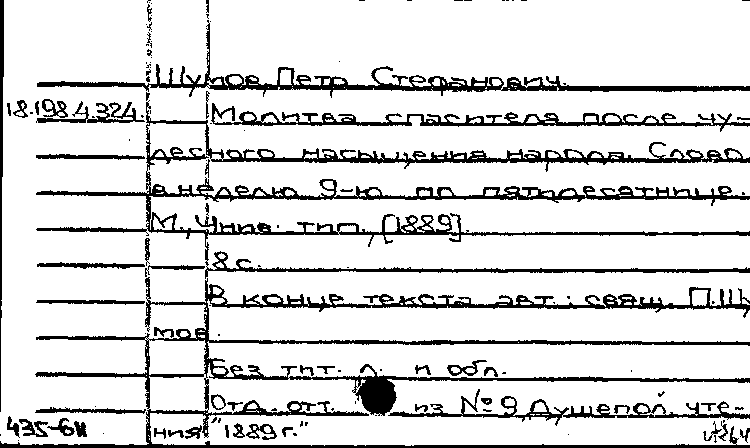 Шумов, Петр Стефанович.
18.198.4.324. Молитва спасителя после чу-
десного насыщения народа. Слово
в неделю 9-ю по пятидесятнице.
М., Унив. тип., [1889].
8 с.
В конце текста авт.: свящ. П.Шу
мов.
Без тит. л. и обл.
Отд. отт. из №9 Душепол. чте-
435-61 ния "1889 г."